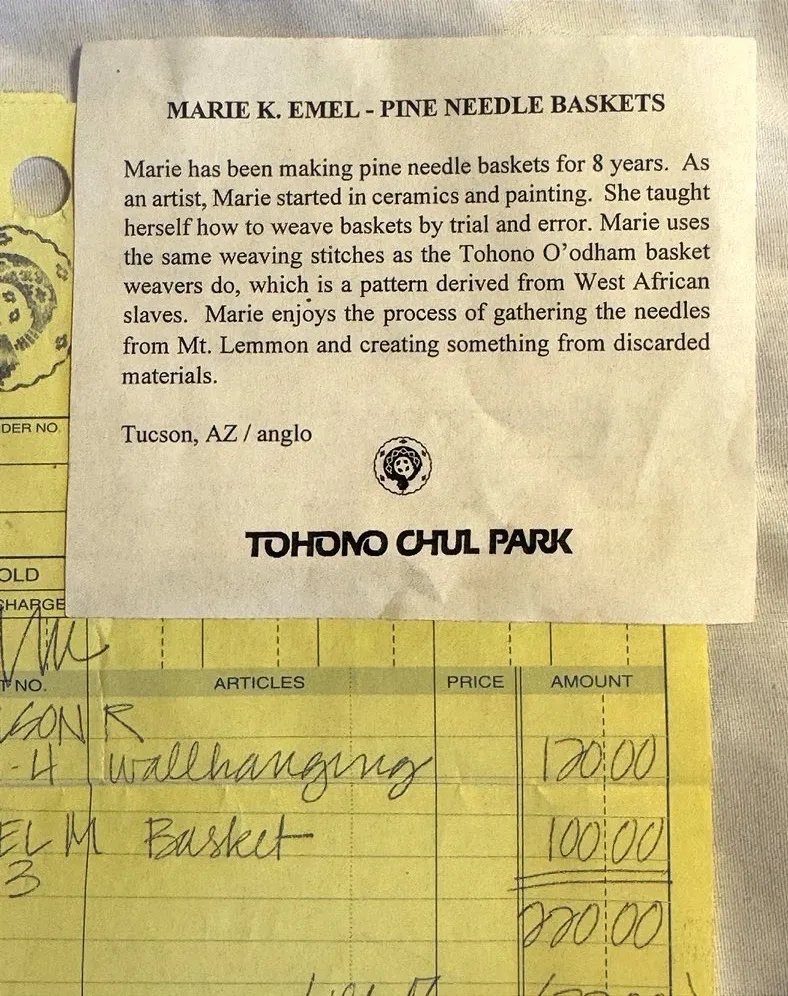 MARIE K. EMEL - PINE NEEDLE BASKETS
Marie has been making pine needle baskets for 8 years. As
an artist, Marie started in ceramics and painting. She taught
herself how to weave baskets by trial and error. Marie uses
the same weaving stitches as the Tohono O'odham basket
weavers do, which is a pattern derived from West African
slaves. Marie enjoys the process of gathering the needles
from Mt. Lemmon and creating something from discarded
materials.
Tucson, AZ / anglo
TOHONO CHUL PARK
DER NO.
OLD
CHARGE
T NO. ARTICLES PRICE AMOUNT
SON R
-4 wallhanging 120.00
EL M Basket 100.00
3
220.00